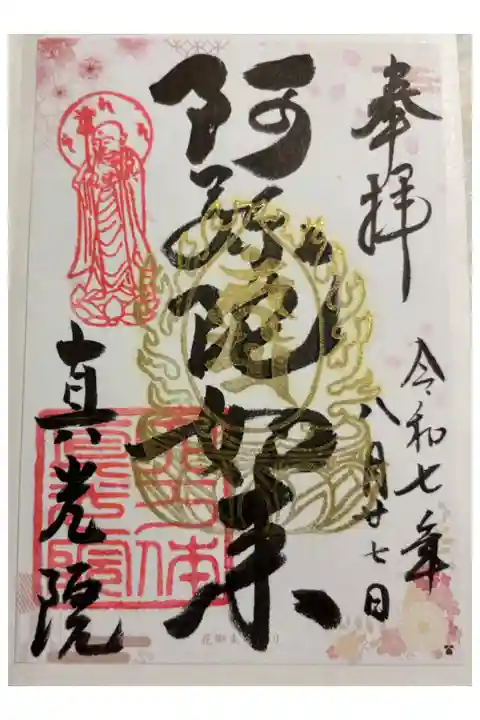 奉拝
令和七年
八月廿七日
阿弥陀如来
真光院